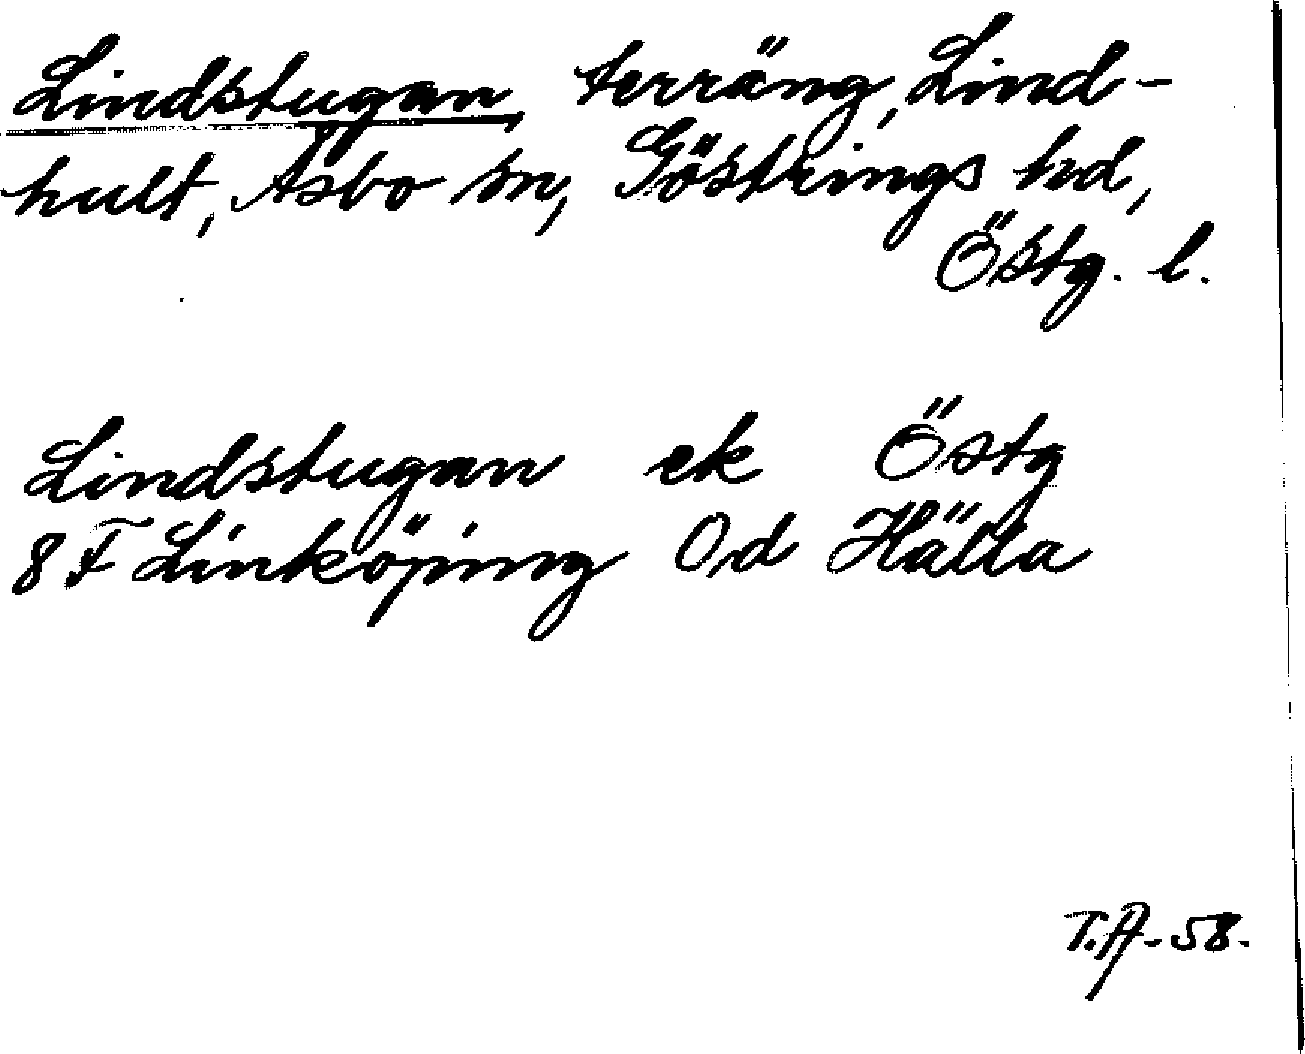 Lindstugan, terräng, Lind-
hult, Åsbo sn, Göstrings hd,
Östg. l.
Lindstugan ek Östg
8 F Linköping 0,d Hälla
T.A-58.